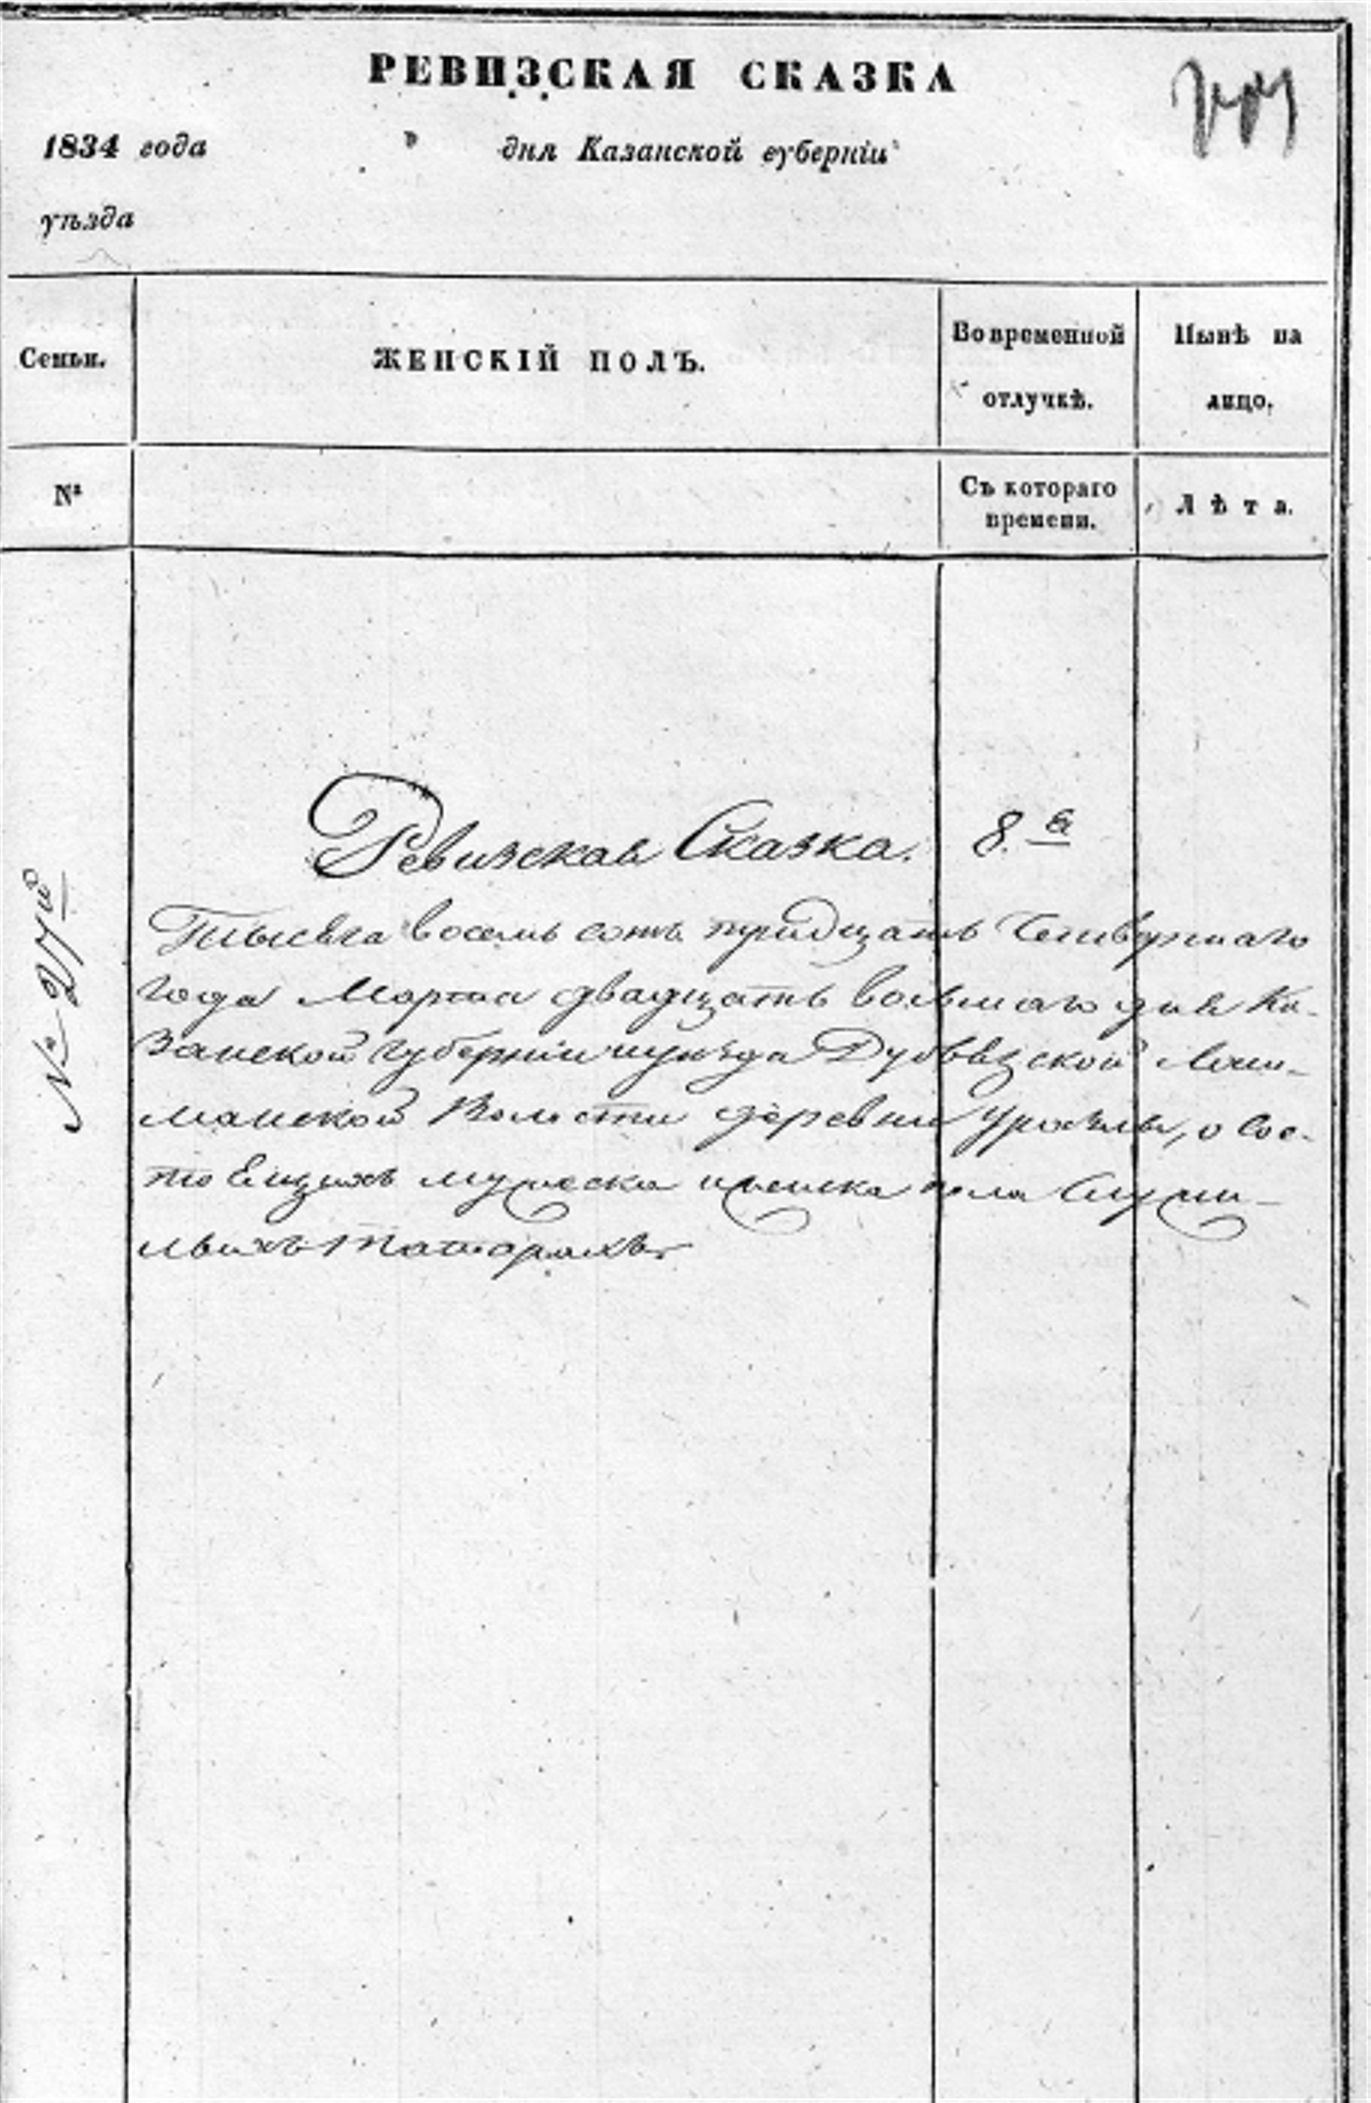 РЕВИЗСКАЯ СКАЗКА
1834 года дня Казанской губерніи
уѣзда
Семьи. ЖЕНСКІЙ ПОЛЪ. Во временной отлучкѣ. Нынѣ на лицо.
№ Съ котораго времени. Лѣта.
Ревизская Сказка. 8.я
№ 27й
Тысяча восемь сотъ тридцать Четвертаго
года Марта двадцать восьмаго дня Ка-
занской губерніи и уѣзда
манской Волости деревни о сос-
тоящихъ мужеска и женска пола Служи-
лыхъ Татарахъ